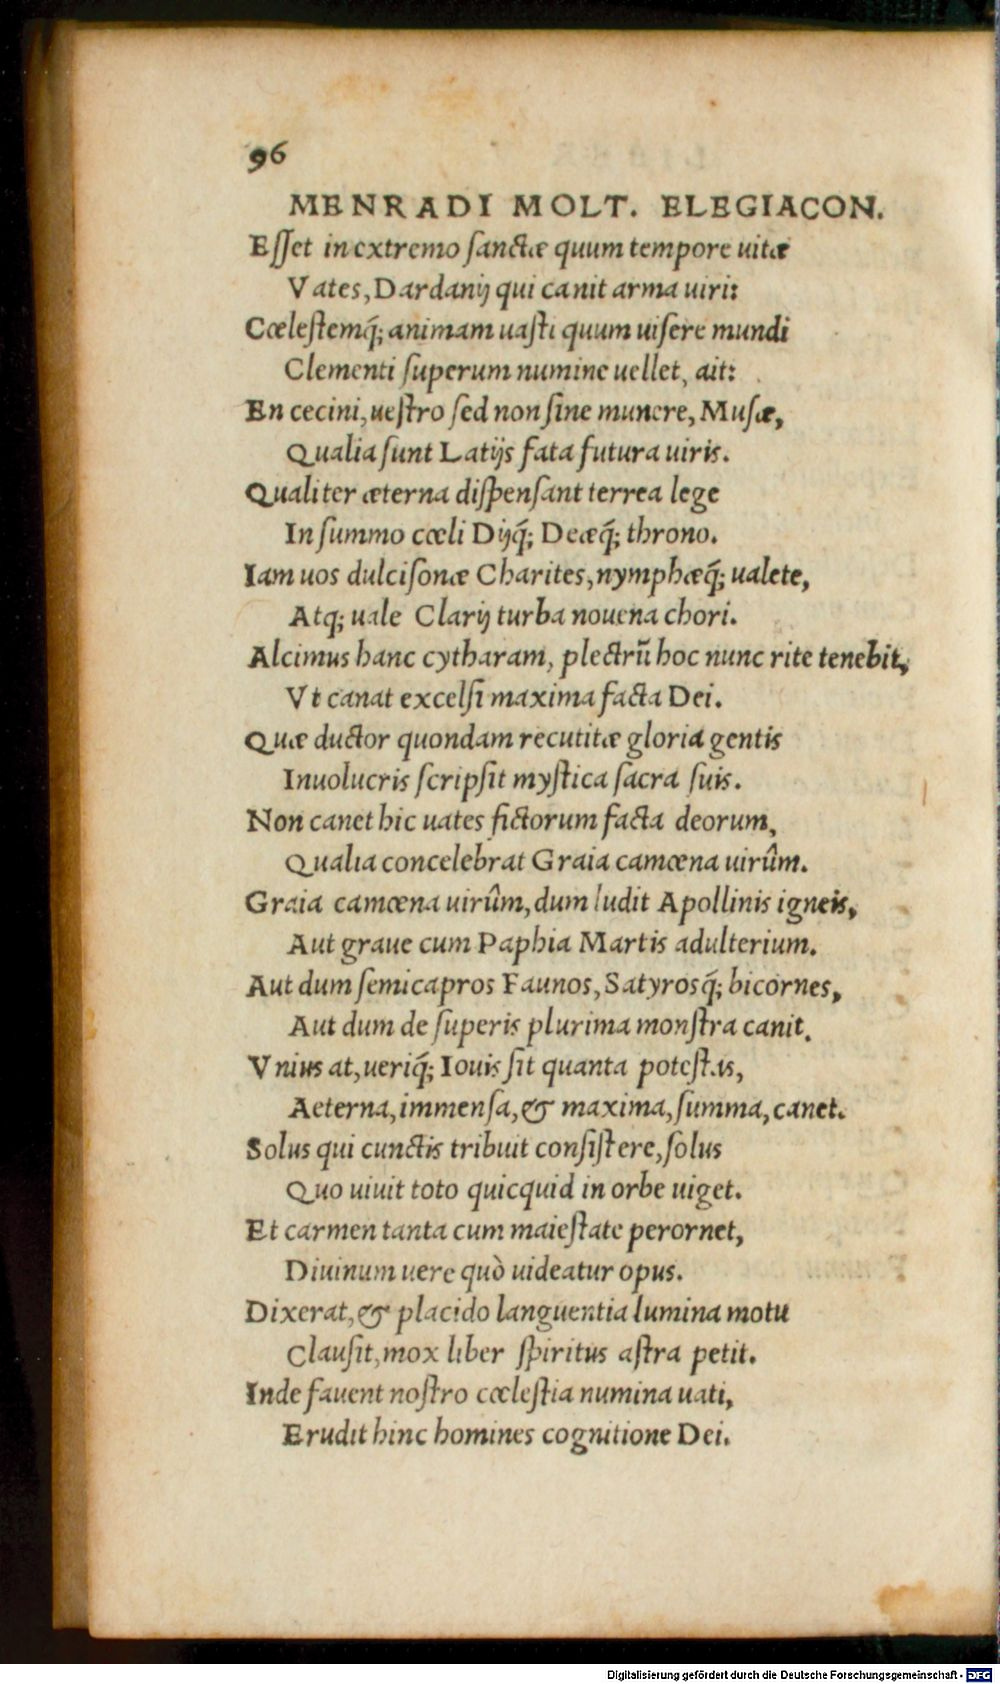 96
MENRADI MOLT. ELEGIACON.
Eſſet in extremo ſanctæ quum tempore uitæ
Vates, Dardanĳ qui canit arma uiri:
Cœleſtemq́; animam uaſti quum uiſere mundi
Clementi ſuperum numine uellet, ait:
En cecini, ueſtro ſed non ſine munere, Muſæ,
Qualia ſunt Latĳs fata futura uiris.
Qualiter æterna diſpenſant terrea lege
In ſummo cœli Dĳq́; Deæq́; throno.
Iam uos dulciſonæ Charites, nymphæq́; ualete,
Atq; uale Clarĳ turba nouena chori.
Alcimus hanc cytharam, plectrũ hoc nunc rite tenebit,
Vt canat excelſi maxima facta Dei.
Quæ ductor quondam recutitæ gloria gentis
Inuolucris ſcripſit myſtica ſacra ſuis.
Non canet hic uates fictorum facta deorum,
Qualia concelebrat Graia camœna uirûm.
Graia camœna uirûm, dum ludit Apollinis igneis,
Aut graue cum Paphia Martis adulterium.
Aut dum ſemicapros Faunos, Satyrosq́; bicornes,
Aut dum de ſuperis plurima monſtra canit.
Vnius at, ueriq́; Iouis ſit quanta poteſtas,
Aeterna, immenſa, & maxima, ſumma, canet.
Solus qui cunctis tribuit conſiſtere, ſolus
Quo uiuit toto quicquid in orbe uiget.
Et carmen tanta cum maieſtate perornet,
Diuinum uere quò uideatur opus.
Dixerat, & placido languentia lumina motu
Clauſit, mox liber ſpiritus aſtra petit.
Inde fauent noſtro cœleſtia numina uati,
Erudit hinc homines cognitione Dei.
Digitalisierung gefördert durch die Deutsche Forschungsgemeinschaft - DFG